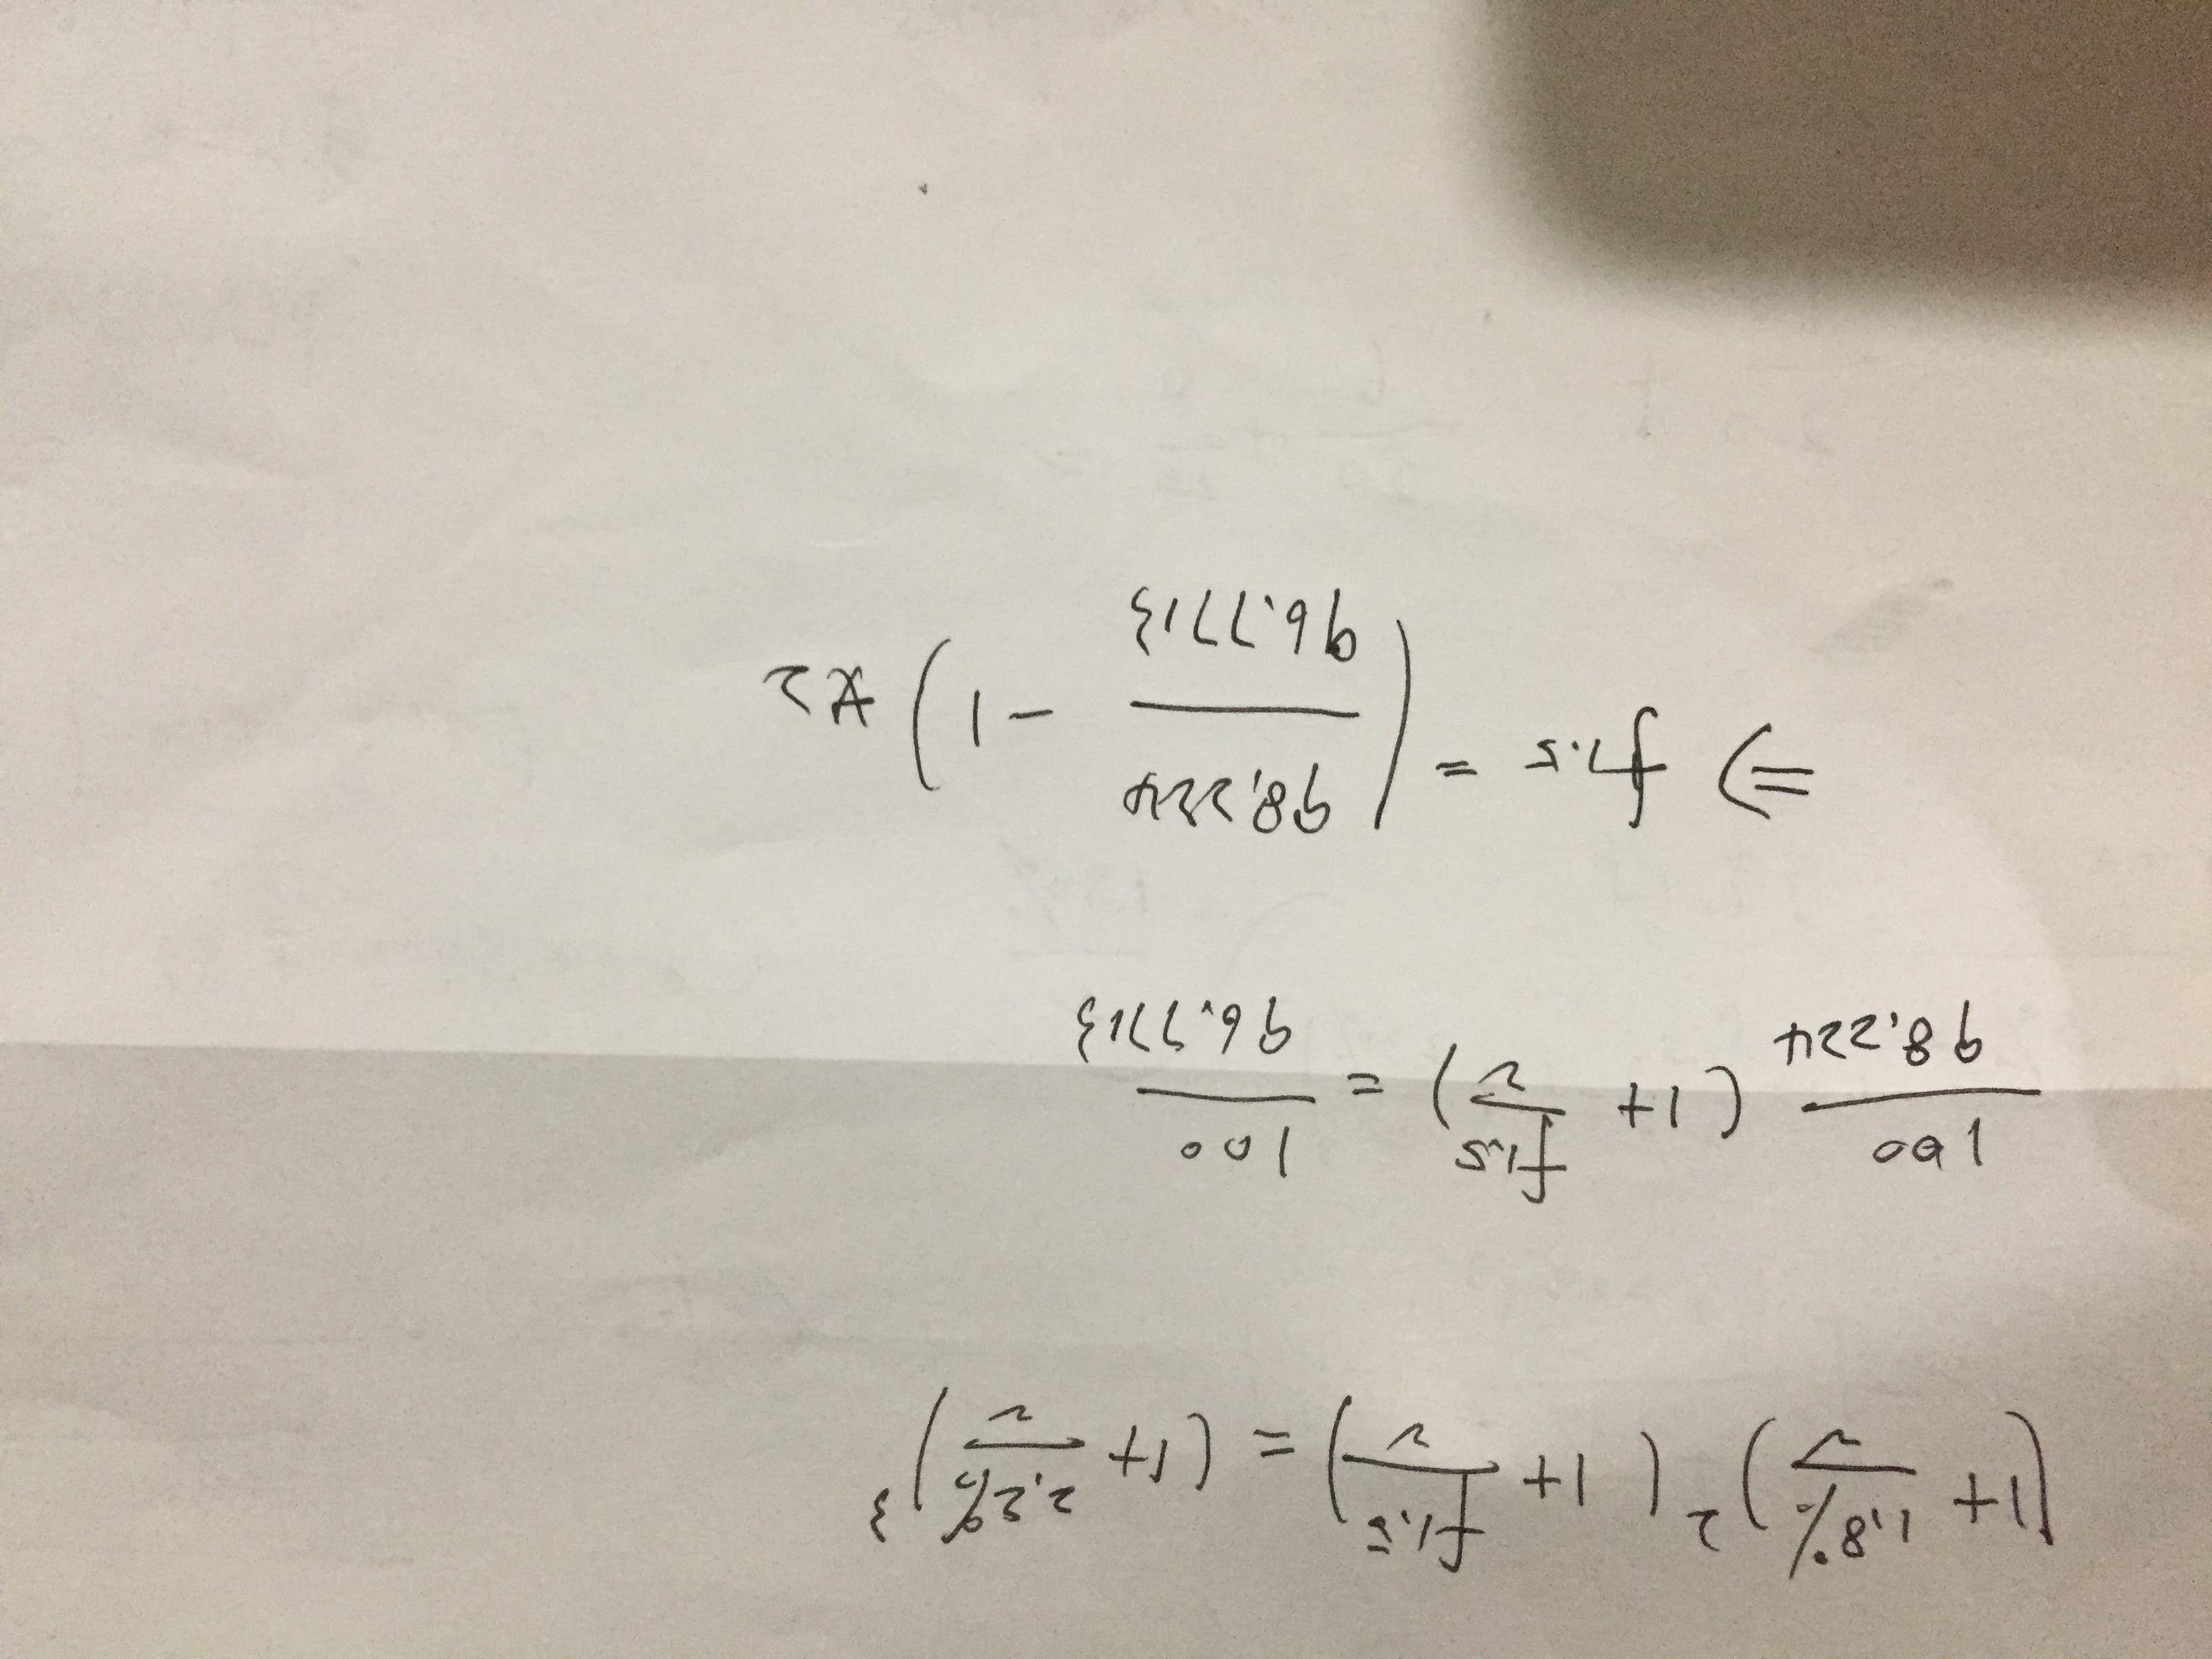 (1+ 1.8%/2)² (1+ f1.5/2) = (1+ 2.2%/2)³
100/98.224 (1+ f1.5/2) = 100/96.7713
=> f1.5 = (98.224/96.7713 - 1) x2